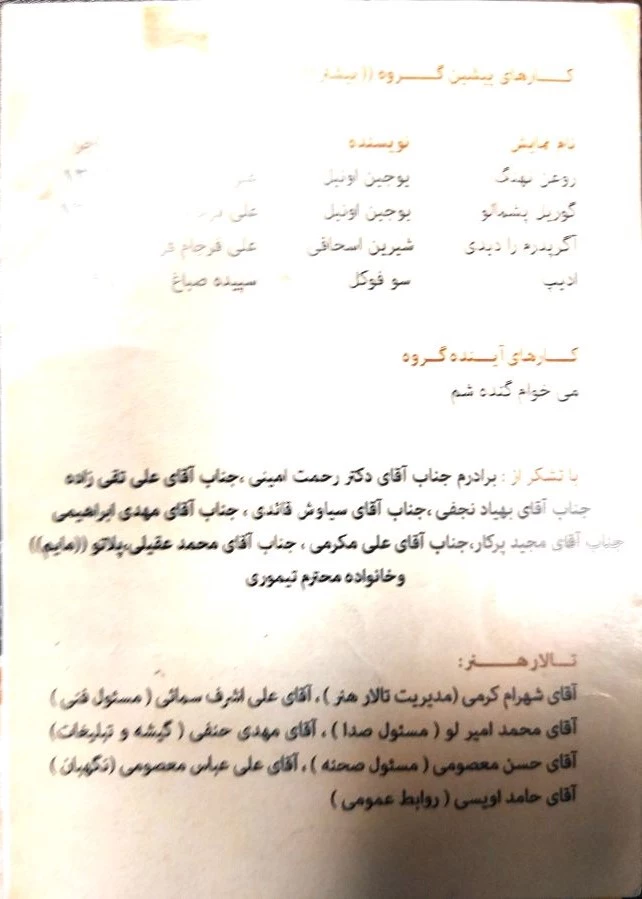 کارهای پیشین گروه ((
نام نمایش نویسنده
روغن نهنگ یوجین اونیل
گوریل پشمالو یوجین اونیل علی
اگر پدرم را دیدی شیرین اسحاقی علی فرجام فر
ادیپ سو فوکل سپیده صباغ
کارهای آینده گروه
می خوام گنده شم
با تشکر از : برادرم جناب آقای دکتر رحمت امینی ،جناب آقای علی تقی زاده
جناب آقای بهیاد نجفی ،جناب آقای سیاوش قائدی ، جناب آقای مهدی ابراهیمی
جناب آقای مجید پرکار،جناب آقای علی مکرمی ، جناب آقای محمد عقیلی،پلاتو ((مایم))
وخانواده محترم تیموری
تالار هنر:
آقای شهرام کرمی (مدیریت تالار هنر ) ، آقای علی اشرف سمائی ( مسئول فنی )
آقای محمد امیر لو ( مسئول صدا ) ، آقای مهدی حنفی ( گیشه و تبلیغات)
آقای حسن معصومی ( مسئول صحنه ) ، آقای علی عباس معصومی (نگهبان )
آقای حامد اویسی ( روابط عمومی )